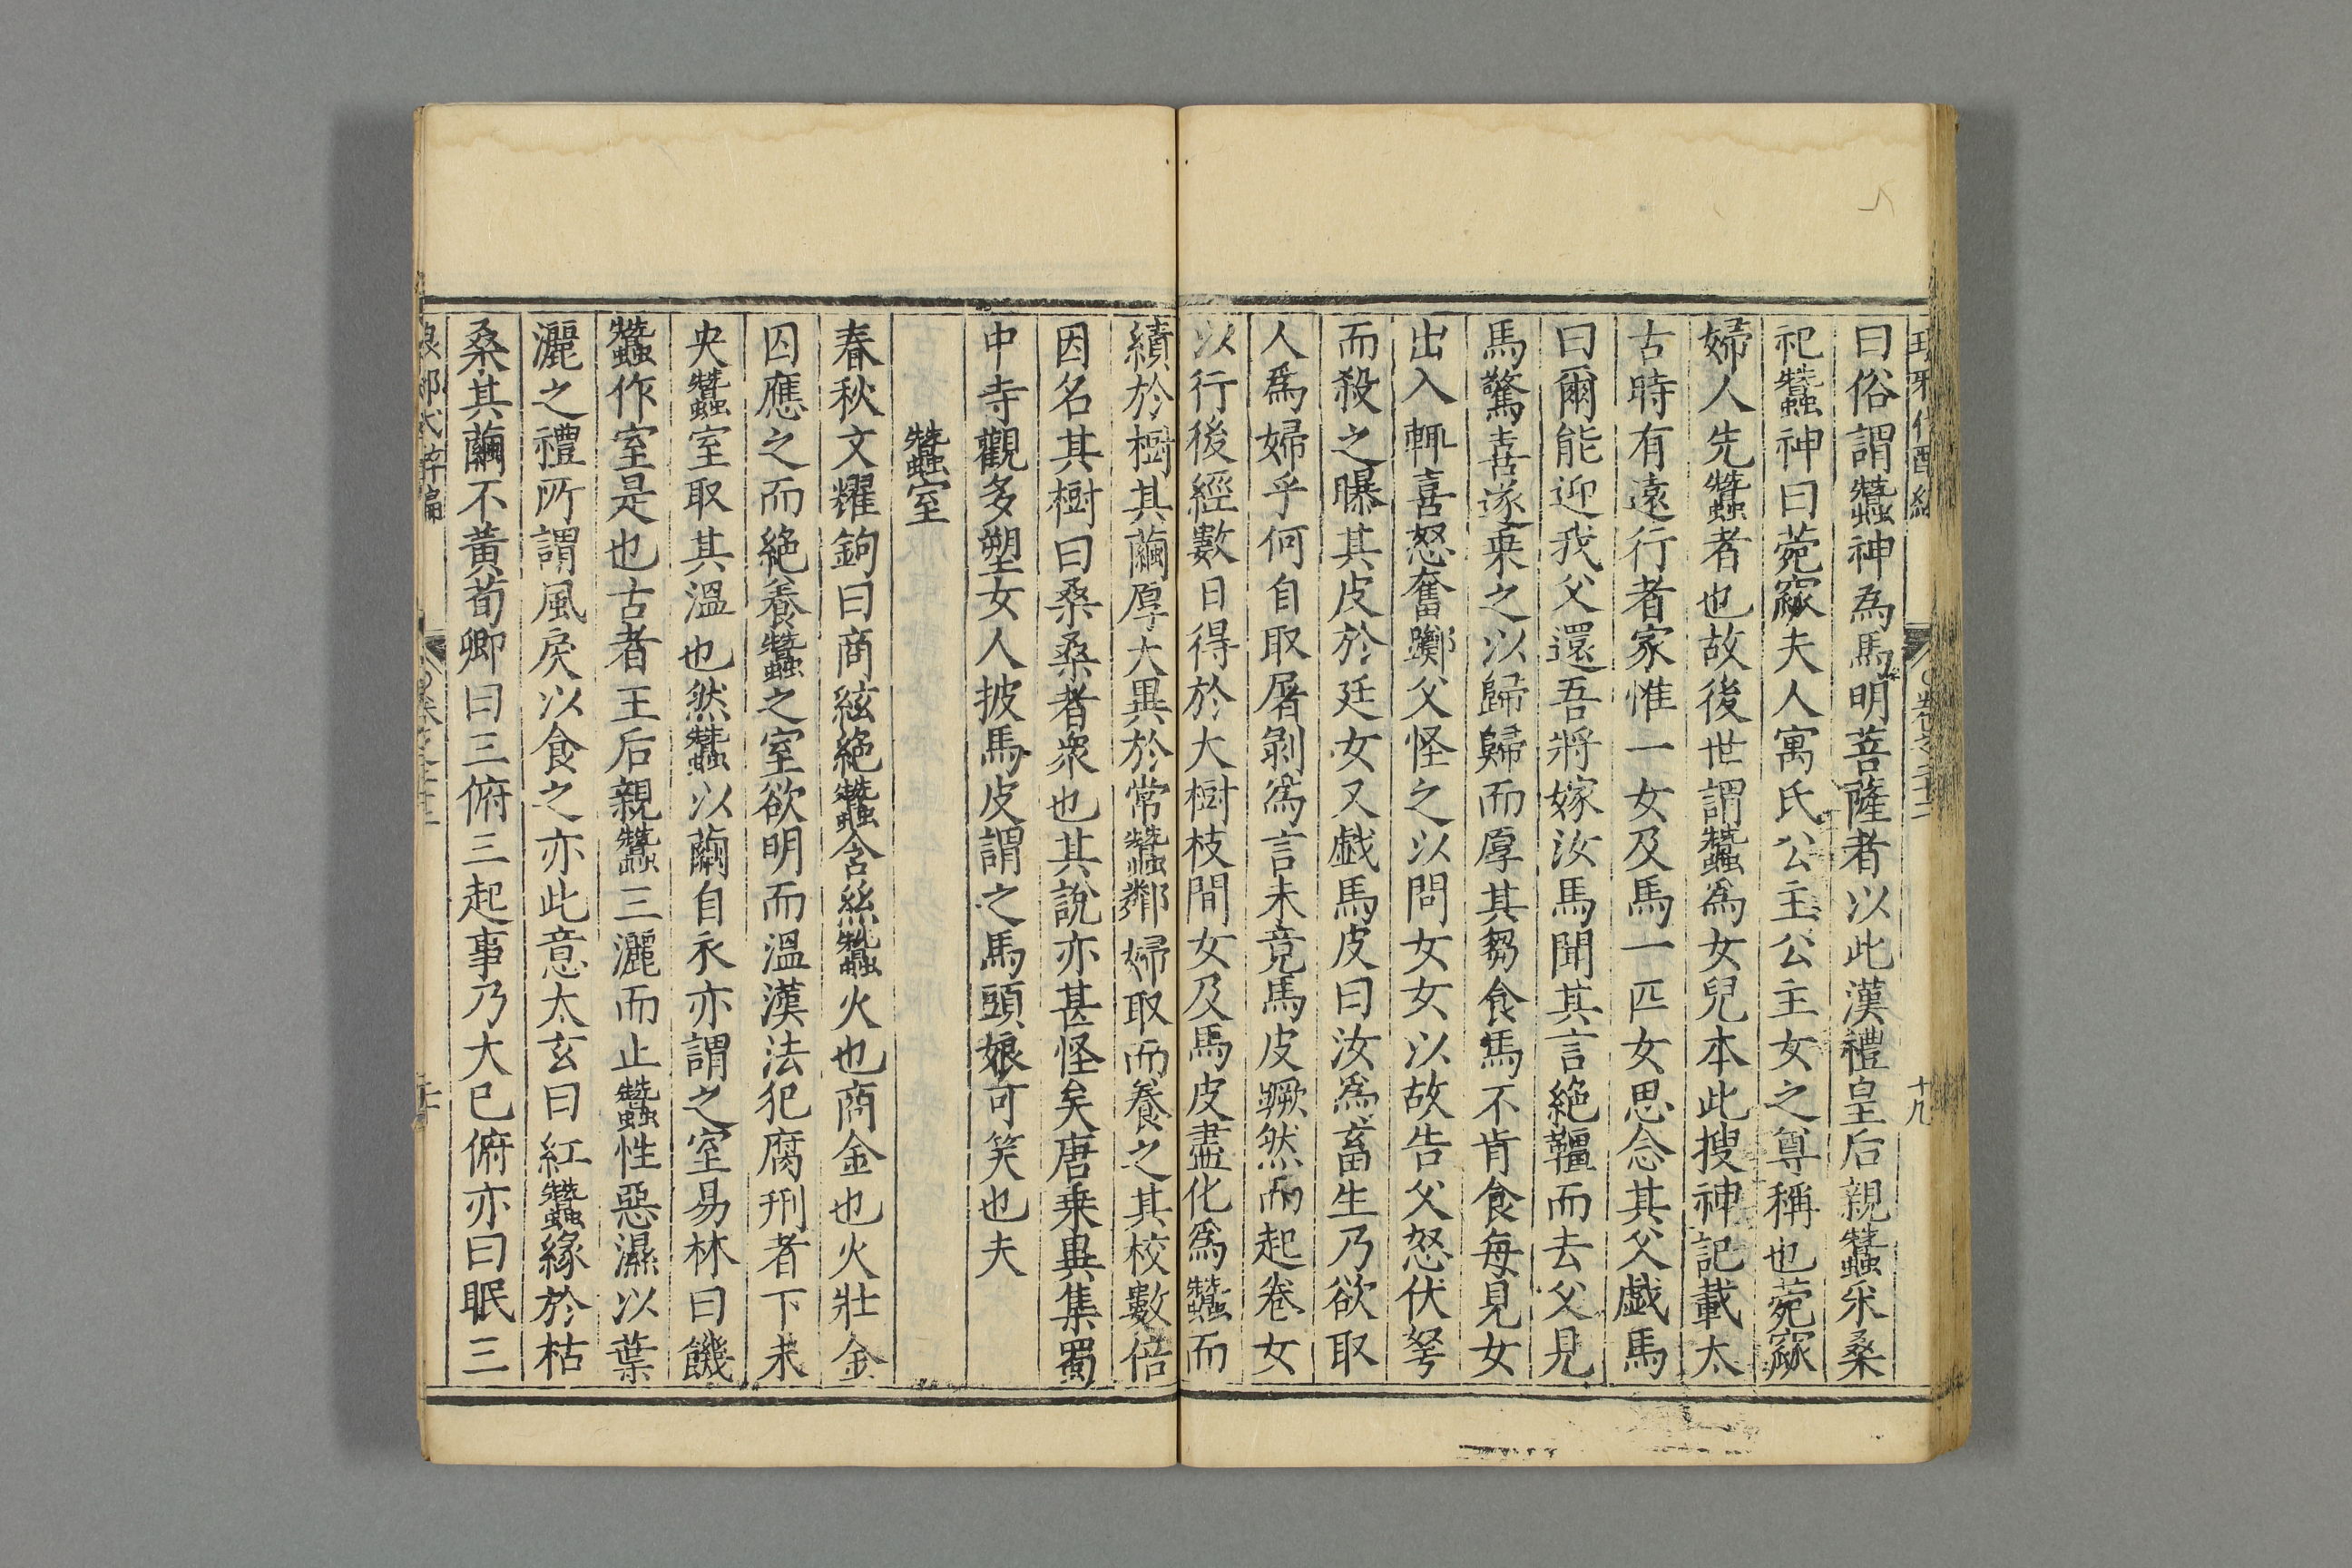 卷之二十二
十九
曰俗謂蠶神為馬明菩薩者以此漢禮皇后親蠶采桑
祀蠶神曰菀窳夫人寓氏公主公主女之尊稱也菀窳
婦人先蠶者也故後世謂蠶為女兒本此搜神記載太
古時有遠行者家惟一女及馬一匹女思念其父戱馬
曰爾能迎我父還吾將嫁汝馬聞其言絶韁而去父見
馬驚喜遂乗之以歸歸而厚其芻食馬不肯食每見女
出入輒喜怒奮躑父怪之以問女女以故告父怒伏弩
而殺之曝其皮於廷女又戱馬皮曰汝為畜生乃欲取
人為婦乎何自取屠剝為言未竟馬皮蹶然而起卷女
以行後經數日得於大樹枝間女及馬皮盡化為蠶而
績於樹其繭厚大異於常蠶鄰婦取而養之其校數倍
因名其樹曰桑桑者衆也其說亦甚怪矣唐乗異集蜀
中寺觀多塑女人披馬皮謂之馬頭娘可笑也夫
蠶室
春秋文耀鉤曰商絃絶蠶含絲蠶火也商金也火壯金
囚應之而絶養蠶之室欲明而溫漢法犯腐刑者下未
央蠶室取其溫也然蠶以繭自衣亦謂之室易林曰饑
蠶作室是也古者王后親蠶三灑而止蠶性惡濕以葉
灑之禮所謂風戾以食之亦此意太玄曰紅蠶緣於枯
桑其繭不黃荀卿曰三俯三起事乃大已俯亦曰眠三
琅邪代醉編